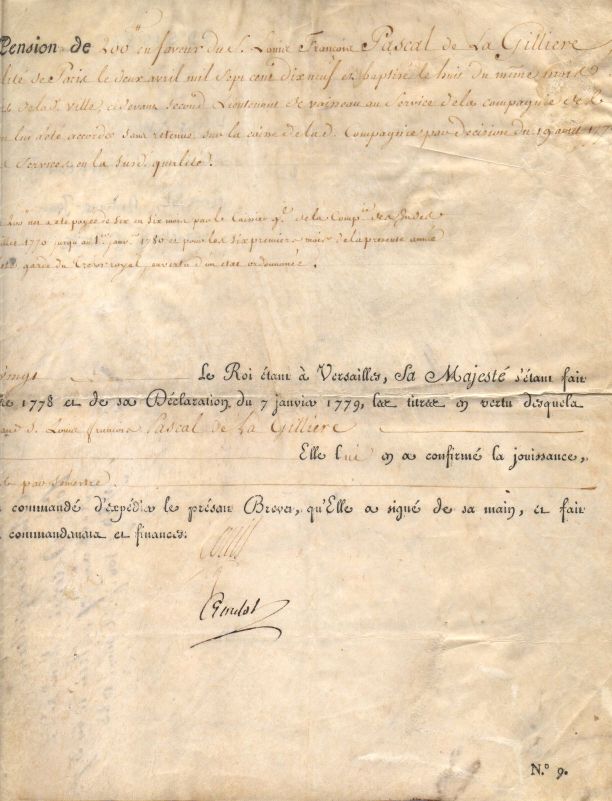 Pension de 200 en faveur du S. Louis François Pascal de La Gilliere
de Paris le deux avril mil Sept cent dix neuf et baptisé le huit du meme mois
de lad. ville, ci devant second Lieutenant de vaisseau au Service de la compagnie
lui a été accordée sans retenue sur la caisse de lad. Compagnie par decision du 19 avril
Services en la susd. qualité.
200 a été payée de six en six mois par le Caissier g. de la Comp. des Indes
1770 jusqu'au 1er janv. 1780 et pour les six premiers mois de la presente année
garde du Tresor royal, en vertu d'un etat ordonnancé.
vingt Le Roi étant à Versailles, Sa Majesté s'étant fait
1778 et de sa Déclaration du 7 janvier 1779, les titres en vertu desquels
S. Louis françois Pascal de La Gilliere
Elle lui en a confirmé la jouissance,
par semestre.
commandé d'expédier le présent Brevet, qu'Elle a signé de sa main, et fait
commandemens et finances.
Louis
N.° 9.